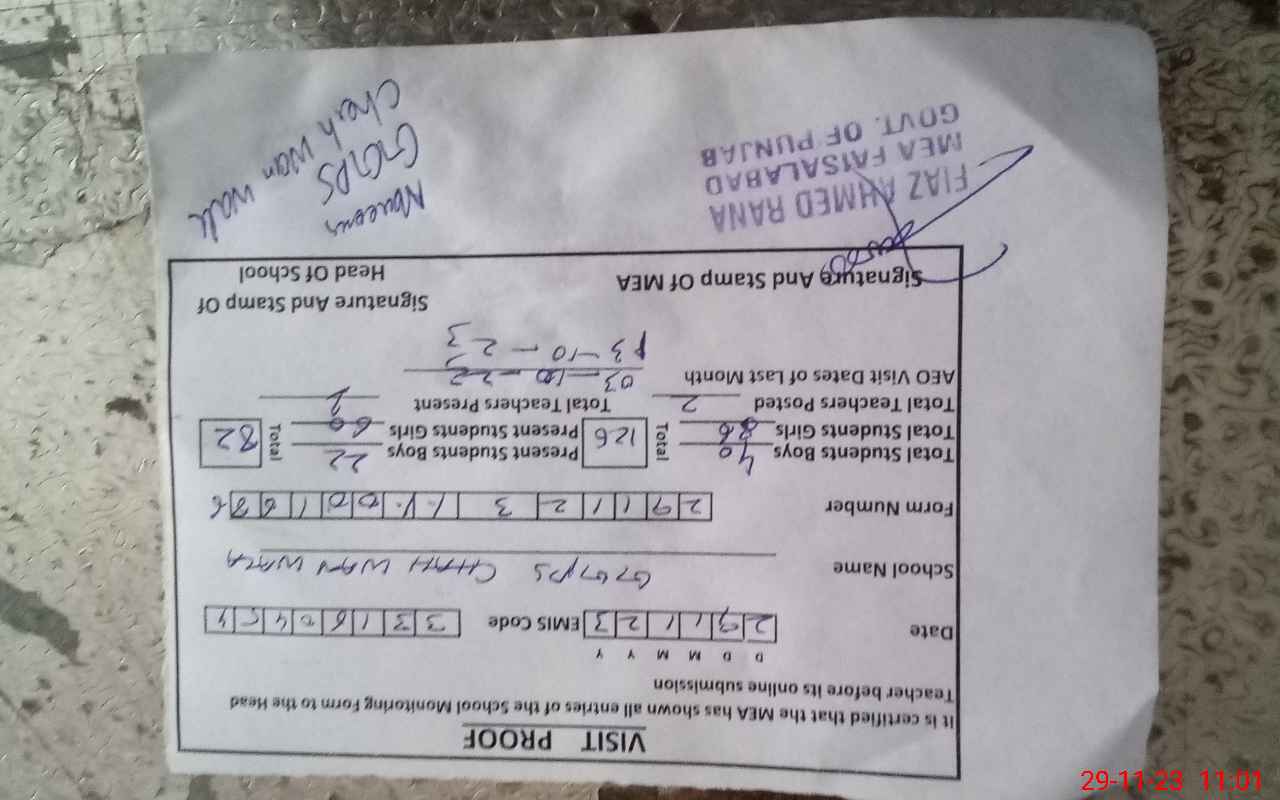 VISIT PROOF
It is certified that the MEA has shown all entries of the School Monitoring Form to the Head
Teacher before its online submission
D D M M Y Y
Date 29 11 23 EMIS Code 33160454
School Name GGPS CHAH WAN WALA
Form Number 291123
Total Students Boys 40 Total 126 Present Students Boys 22 Total 82
Total Students Girls 86 Present Students Girls 60
Total Teachers Posted 2 Total Teachers Present 2
AEO Visit Dates of Last Month
03-10-23
Signature And Stamp Of MEA
Signature And Stamp Of
Head Of School
FIAZ AHMED RANA
MEA FAISALABAD
GOVT. OF PUNJAB
GGPS
Chah wan wala
29-11-23 11:01